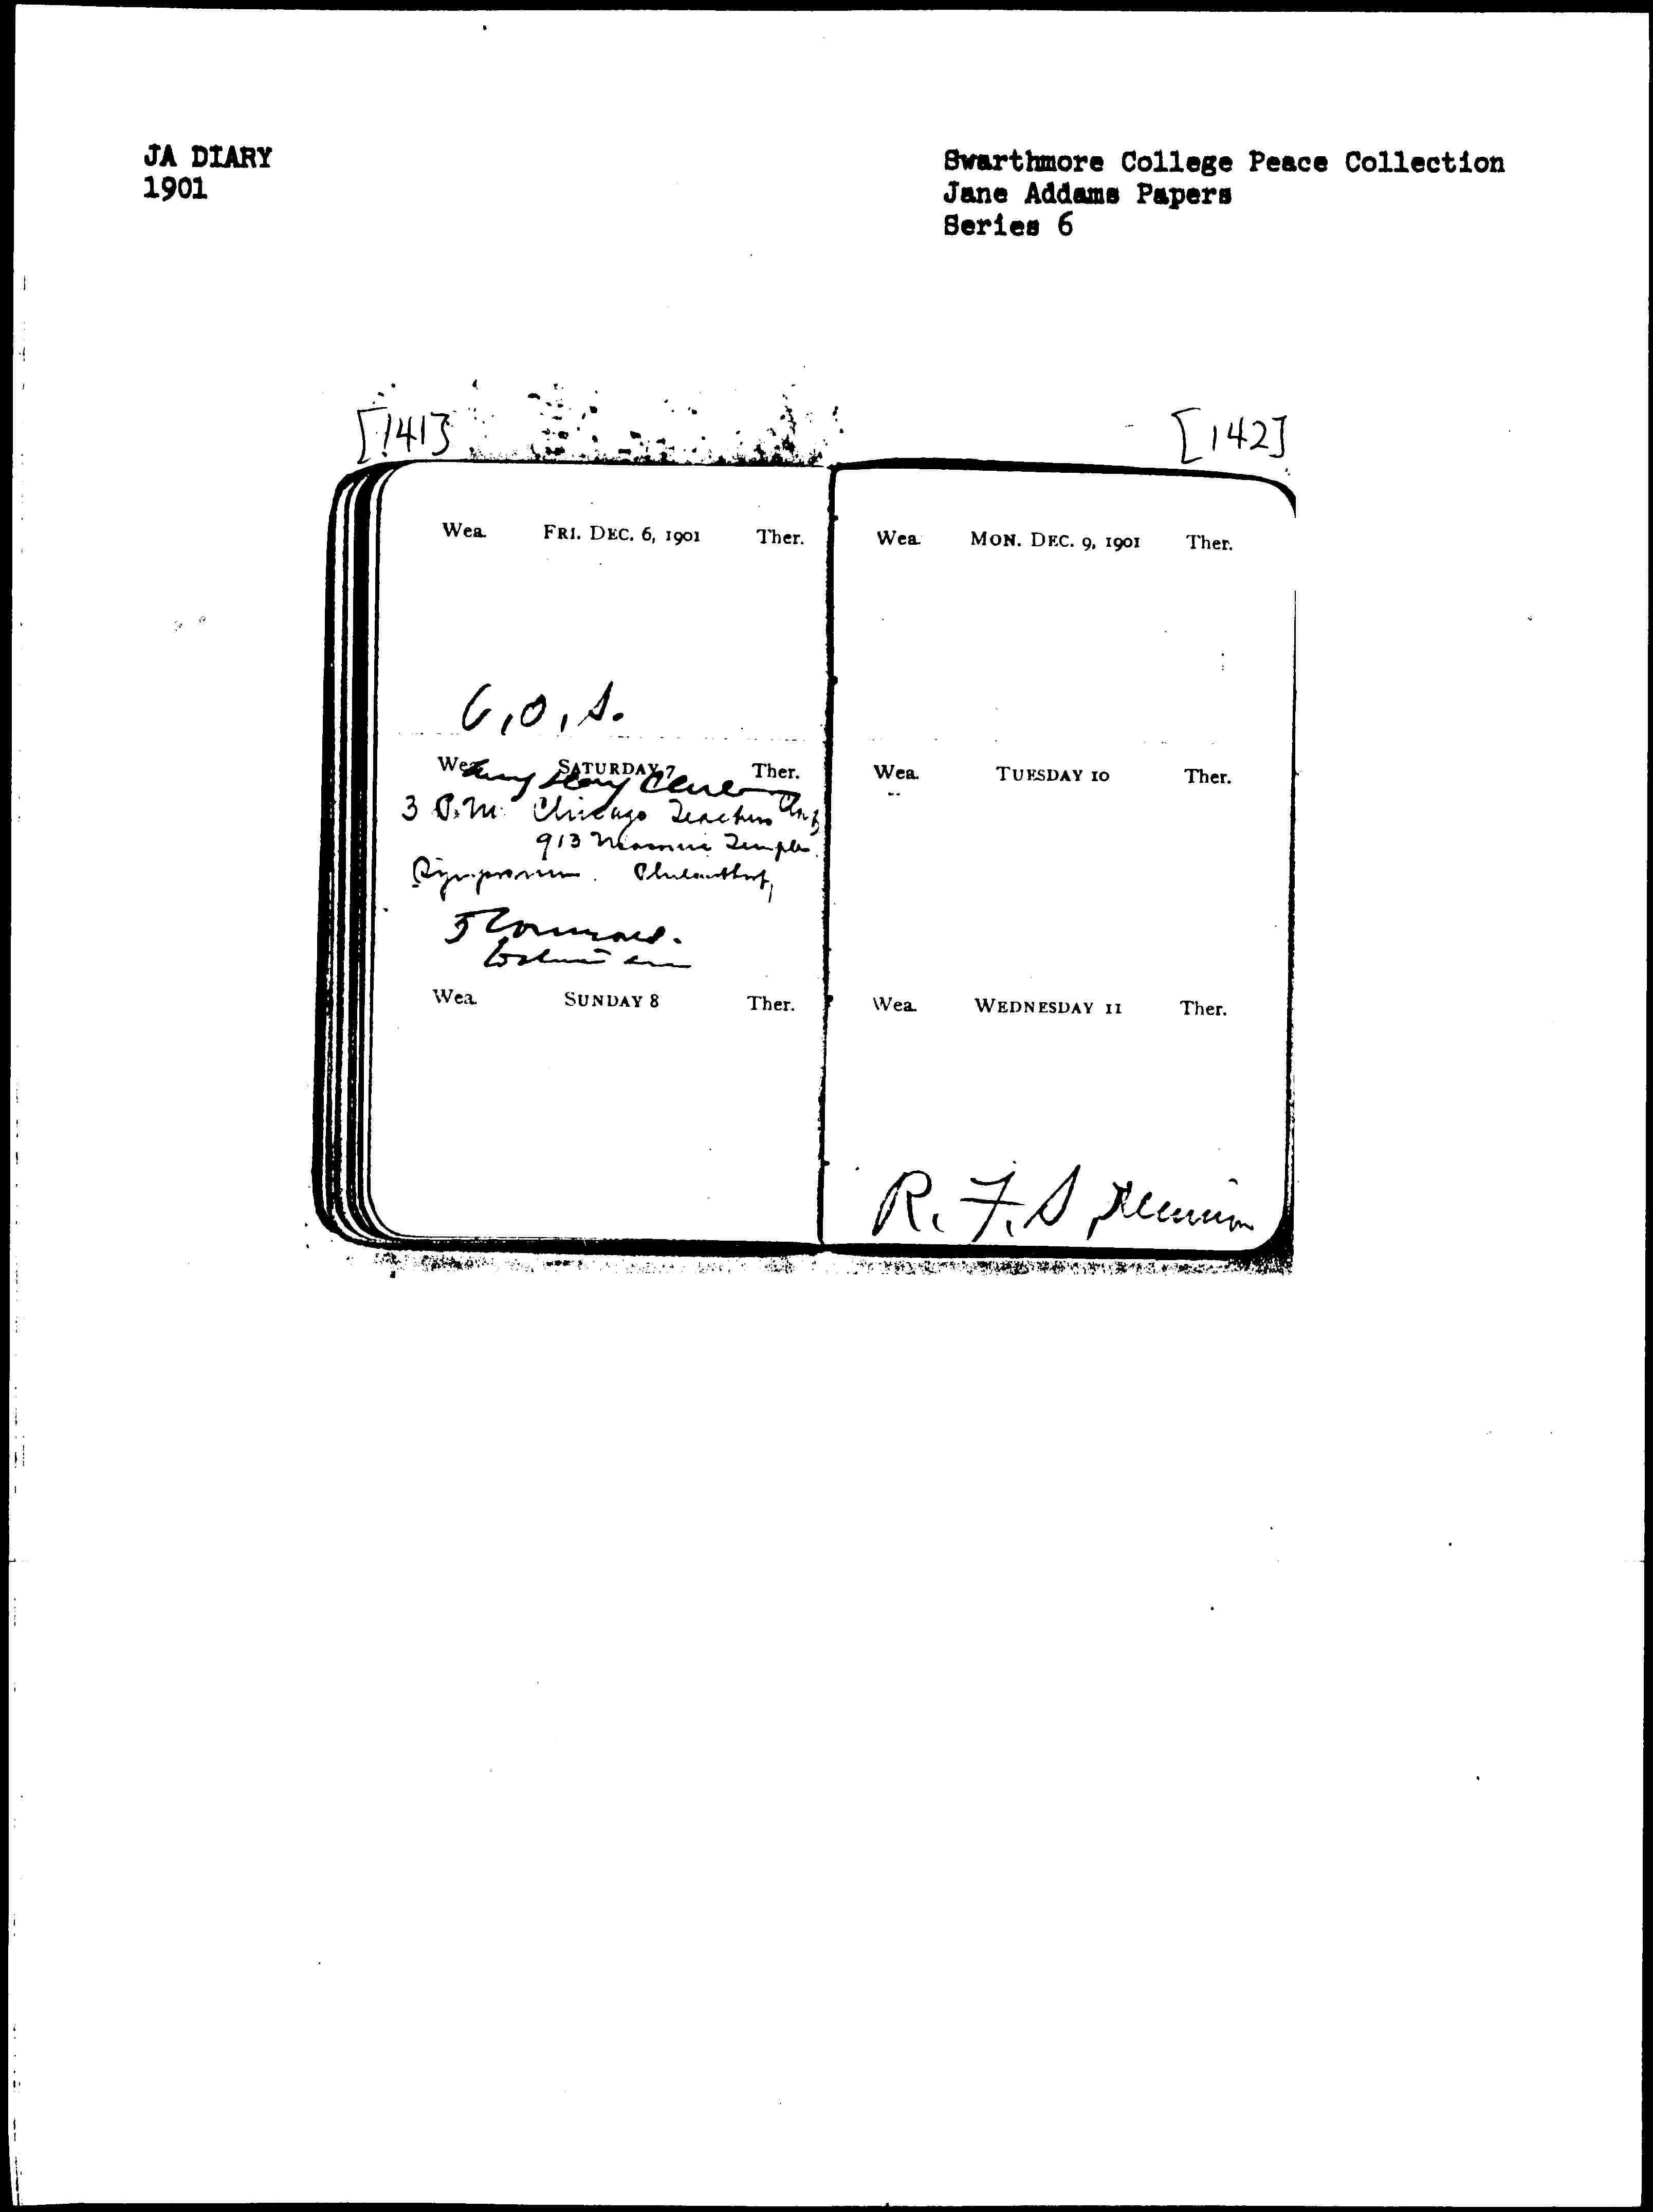 JA DIARY
1901
Swarthmore College Peace Collection
Jane Addams Papers
Series 6
[141]
[142]
Wea. FRI. DEC. 6, 1901 Ther.
C, O, S.
Wea. SATURDAY 7 Ther.
Club
3 P.M. Chicago Teachers
913 Masonic Temple.
Symposium.
Wea. SUNDAY 8 Ther.
Wea. MON. DEC. 9, 1901 Ther.
Wea. TUESDAY 10 Ther.
Wea. WEDNESDAY 11 Ther.
R. F. S. Reunion